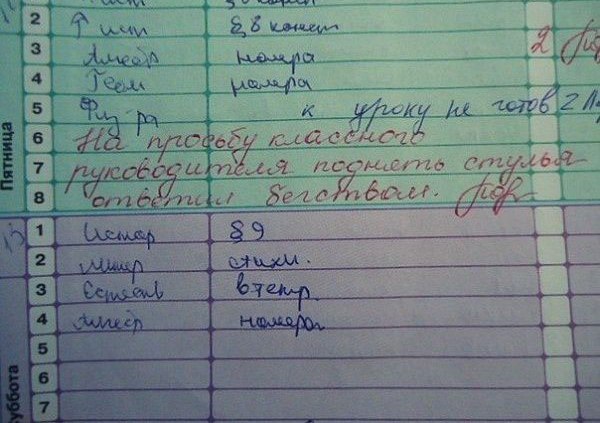 2 ист § 8 конст
3 Алгебр номера 2
4 Геом номера
5 Физ-ра к уроку не готов 2
6 На просьбу классного
7 руководителя поднять стулья
8 ответил бегством.
Пятница
1 Истор § 9
2 Литер стихи.
3 Естеств в тетр.
4 Алгебр номера
5
6
7
Суббота